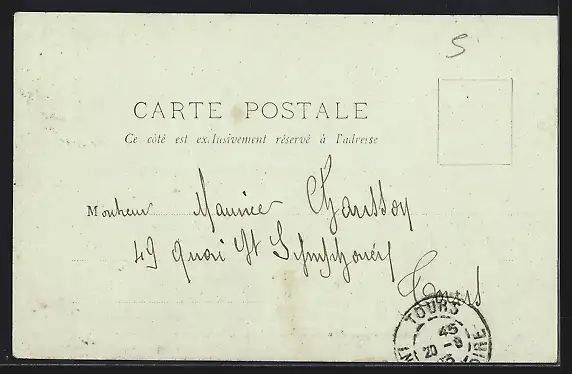 S
CARTE POSTALE
Ce côté est exclusivement réservé à l'adresse
Monsieur Maurice Chaussoy
49 quai St Symphorien
Tours
TOURS
45
20 - 8